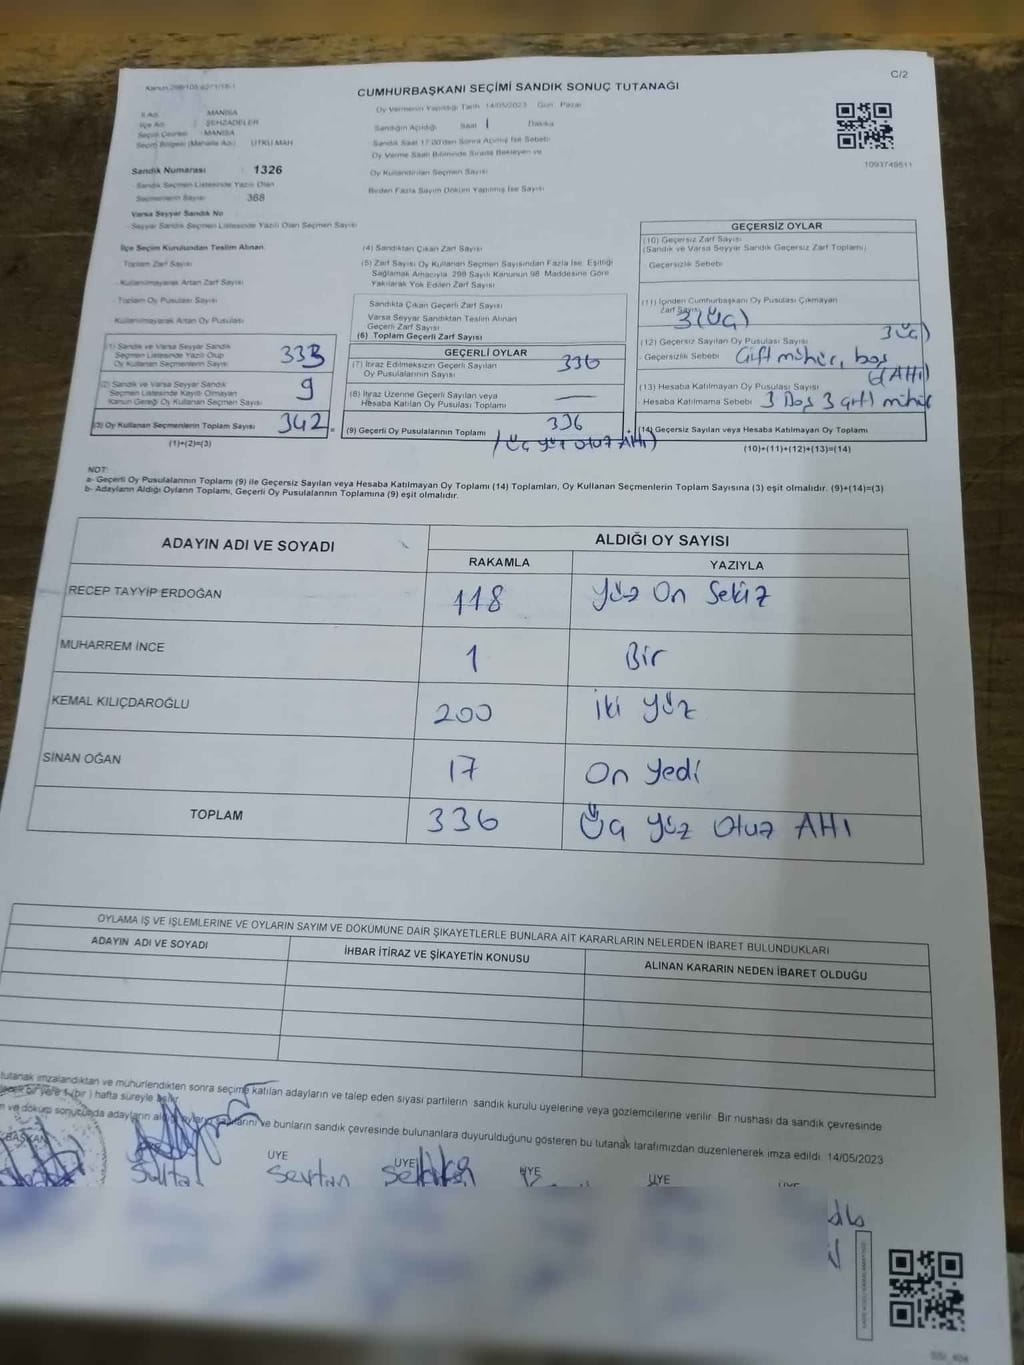 C/2
CUMHURBAŞKANI SEÇİMİ SANDIK SONUÇ TUTANAĞI
Oy Vermenin Yapıldığı Tarih 14/05/2023 Gün Pazar
İli Adı : MANİSA
İlçe Adı : ŞEHZADELER
Seçim Çevresi : MANİSA
Seçim Bölgesi (Mahalle Adı) UTKU MAH
Sandığın Açıldığı Saat Dakika
Sandık Saat 17.00'den Sonra Açılmış İse Sebebi
Oy Verme Saati Bitiminde Sırada Bekleyen ve
Oy Kullandırılan Seçmen Sayısı
Birden Fazla Sayım Döküm Yapılmış İse Sayısı
1093749511
Sandık Numarası : 1326
Sandık Seçmen Listesinde Yazılı Olan
Seçmenlerin Sayısı 368
Varsa Seyyar Sandık No
Seyyar Sandık Seçmen Listesinde Yazılı Olan Seçmen Sayısı
İlçe Seçim Kurulundan Teslim Alınan
Toplam Zarf Sayısı
Kullanılmayarak Artan Zarf Sayısı
Toplam Oy Pusulası Sayısı
Kullanılmayarak Artan Oy Pusulası
(1) Sandık ve Varsa Seyyar Sandık
Seçmen Listesinde Yazılı Olup
Oy Kullanan Seçmenlerin Sayısı 333
(2) Sandık ve Varsa Seyyar Sandık
Seçmen Listesinde Kayıtlı Olmayan
Kanun Gereği Oy Kullanan Seçmen Sayısı 9
(3) Oy Kullanan Seçmenlerin Toplam Sayısı 342
(1)+(2)=(3)
(4) Sandıktan Çıkan Zarf Sayısı
(5) Zarf Sayısı Oy Kullanan Seçmen Sayısından Fazla İse, Eşitliği
Sağlamak Amacıyla 298 Sayılı Kanunun 98. Maddesine Göre
Yakılarak Yok Edilen Zarf Sayısı
Sandıkta Çıkan Geçerli Zarf Sayısı
Varsa Seyyar Sandıktan Teslim Alınan
Geçerli Zarf Sayısı
(6) Toplam Geçerli Zarf Sayısı
GEÇERLİ OYLAR
(7) İtiraz Edilmeksizin Geçerli Sayılan
Oy Pusulalarının Sayısı 336
(8) İtiraz Üzerine Geçerli Sayılan veya
Hesaba Katılan Oy Pusulası Toplamı —
(9) Geçerli Oy Pusulalarının Toplamı 336
(üç yüz otuz AHı)
GEÇERSİZ OYLAR
(10) Geçersiz Zarf Sayısı
(Sandık ve Varsa Seyyar Sandık Geçersiz Zarf Toplamı)
Geçersizlik Sebebi
(11) İçinden Cumhurbaşkanı Oy Pusulası Çıkmayan
Zarf Sayısı 3(üç)
(12) Geçersiz Sayılan Oy Pusulası Sayısı 3(üç)
Geçersizlik Sebebi Çift mühür, boş
6(AHı)
(13) Hesaba Katılmayan Oy Pusulası Sayısı
Hesaba Katılmama Sebebi 3 boş 3 çift mühür
(14) Geçersiz Sayılan veya Hesaba Katılmayan Oy Toplamı
(10)+(11)+(12)+(13)=(14)
NOT:
a- Geçerli Oy Pusulalarının Toplamı (9) ile Geçersiz Sayılan veya Hesaba Katılmayan Oy Toplamı (14) Toplamları, Oy Kullanan Seçmenlerin Toplam Sayısına (3) eşit olmalıdır. (9)+(14)=(3)
b- Adayların Aldığı Oyların Toplamı, Geçerli Oy Pusulalarının Toplamına (9) eşit olmalıdır.
ADAYIN ADI VE SOYADI ALDIĞI OY SAYISI
RAKAMLA YAZIYLA
RECEP TAYYİP ERDOĞAN 118 Yüz On Sekiz
MUHARREM İNCE 1 Bir
KEMAL KILIÇDAROĞLU 200 İki yüz
SİNAN OĞAN 17 On Yedi
TOPLAM 336 Üç yüz Otuz AHı
OYLAMA İŞ VE İŞLEMLERİNE VE OYLARIN SAYIM VE DÖKÜMÜNE DAİR ŞİKAYETLERLE BUNLARA AİT KARARLARIN NELERDEN İBARET BULUNDUKLARI
ADAYIN ADI VE SOYADI İHBAR İTİRAZ VE ŞİKAYETİN KONUSU ALINAN KARARIN NEDEN İBARET OLDUĞU
tutanak imzalandıktan ve mühürlendikten sonra seçime katılan adayların ve talep eden siyasi partilerin sandık kurulu üyelerine veya gözlemcilerine verilir. Bir nüshası da sandık çevresinde
bir yere 1 (bir) hafta süreyle asılır.
ve döküm sonucunda adayların aldığı oyların sayılarını ve bunların sandık çevresinde bulunanlara duyurulduğunu gösteren bu tutanak tarafımızdan düzenlenerek imza edildi. 14/05/2023
BAŞKAN ÜYE ÜYE ÜYE ÜYE
Sultan